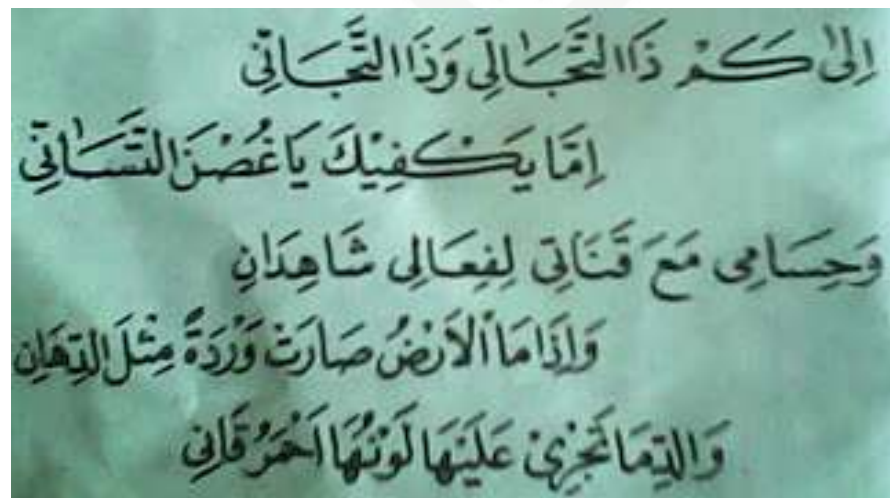 اِلٰى كَمْ ذَا التَّجَالِّى وَذَا التَّجَانِّى
اِمَّا يَكْفِيْكَ يَا غُصْنَ التَّسَانِّى
وَحِسَامِى مَعَ قَنَاتِى لِفِعَالِى شَاهِدَانِ
وَاِذَا مَا الْاَرْضُ صَارَتْ وَرْدَةً مِثْلَ الدِّهَانِ
وَالدِّمَا تَجْرِىْ عَلَيْهَا لَوْنُهَا اَحْمَرُ قَانِى